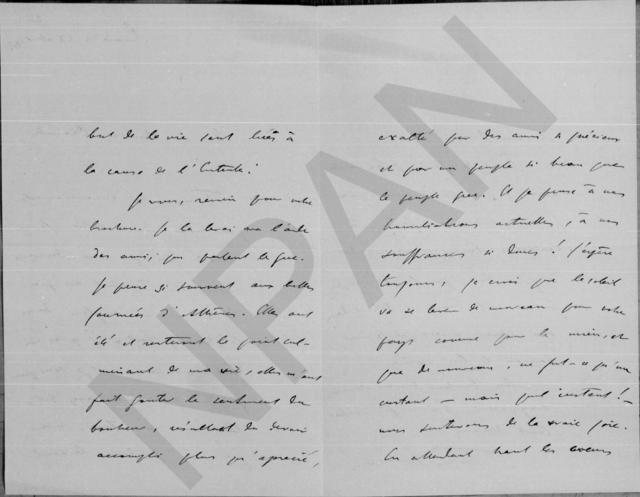 but de la vie sont liés à
la cause de l'Entente!
Je vous remercie pour votre
brochure. Je la lirai avec l'aide
des amis, qui parlent le grec.
Je pense si souvent aux belles
journées d'Athènes. Elles ont
été et resteront le point cul-
minant de ma vie, elles m'ont
fait goûter le sentiment du
bonheur, résultant du devoir
accompli plus qu'apprécié,
exalté par des amis si précieux
et par un peuple si beau que
le peuple grec. Et je pense à vos
humiliations actuelles, à vos
souffrances si dures! J'espère
toujours, je crois que le soleil
va se lever de nouveau pour votre
pays comme pour le mien, et
que de nouveau, ne fut-ce qu'un
instant — mais quel instant! —
nous sentirons de la vraie joie.
En attendant haut les coeurs
NPAN